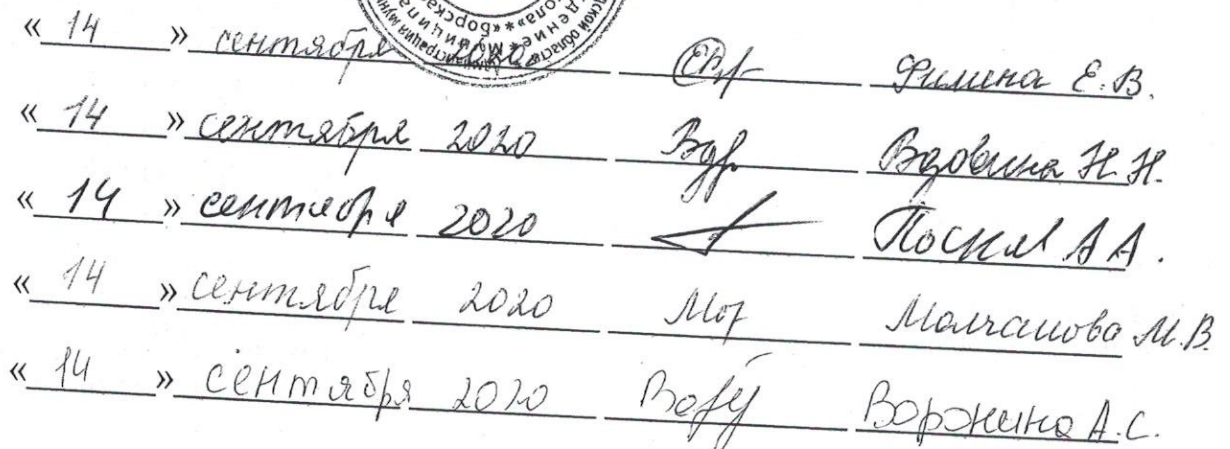 « 14 » сентября 2020 Филина Е.В.
« 14 » сентября 2020 Вдр Вдовина Н.Н.
« 14 » сентября 2020 А А.
« 14 » сентября 2020 Мол Молчанова М.В.
« 14 » сентября 2020 Воронина А.С.